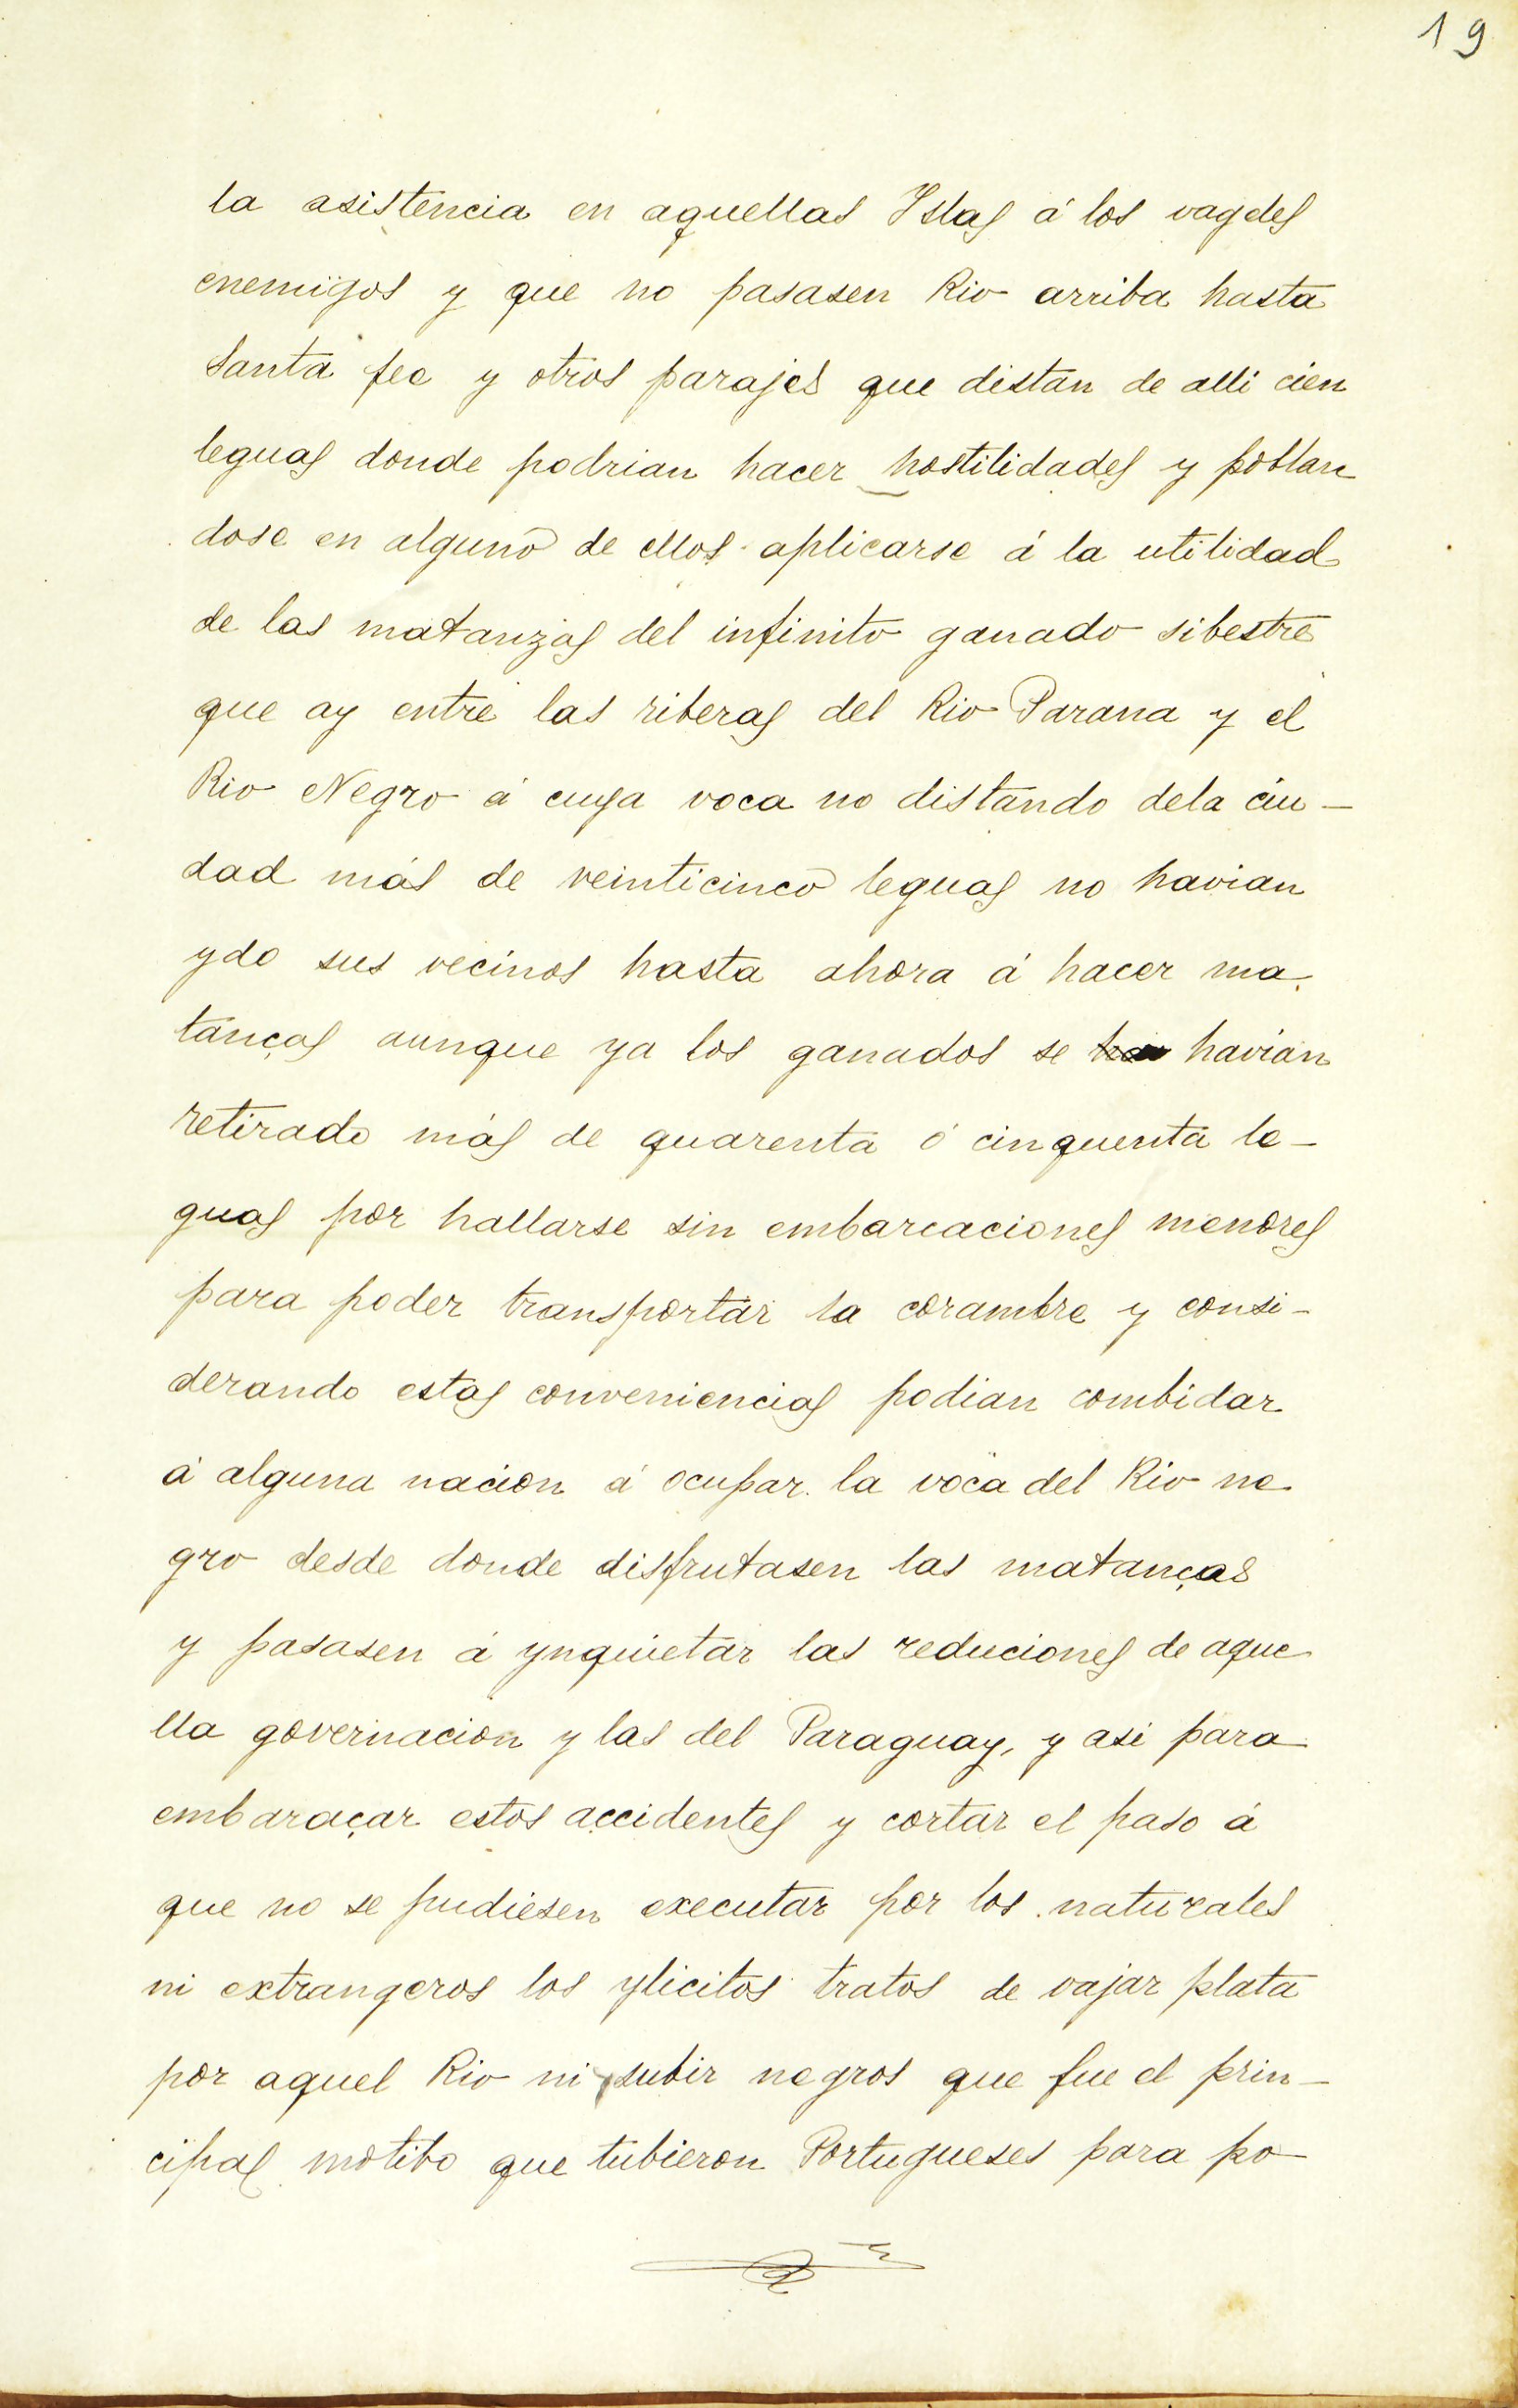 19
la asistencia en aquellas Yslas á los vageles
enemigos y que no pasasen Rio arriba hasta
Santa fee y otros parajes que distan de alli cien
leguas donde podrian hacer hostilidades y poblan
dose en alguno de ellos aplicarse á la utilidad
de las matanzas del infinito ganado silbestre
que ay entre las riberas del Rio Parana y el
Rio Negro á cuya voca no distando dela ciu-
dad más de veinticinco leguas no havian
ydo sus vecinos hasta ahora á hacer ma
tanças aunque ya los ganados se havian
retirado más de quarenta ó cinquenta le-
guas por hallarse sin embarcaciones menores
para poder transportar la corambre y consi-
derando estas conveniencias podian combidar
á alguna nacion á ocupar la voca del Rio ne
gro desde donde disfrutasen las matanças
y pasasen á ynquietar las reduciones de aque
lla governacion y las del Paraguay, y asi para
embaraçar estos accidentes y cortar el paso á
que no se pudiesen executar por los naturales
ni extrangeros los ylicitos tratos de vajar plata
por aquel Rio ni subir negros que fue el prin-
cipal motibo que tubieron Portugueses para po